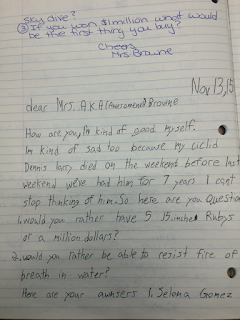 sky dive?
③ If you won $1million what would
be the first thing you buy?
Cheers,
Mrs. Browne
Nov 13, 15
dear Mrs. A.K.A (Awesomeness) Browne
How are you, I'm kind of good myself.
Im kind of sad too because my ciclid
Dennis larry, died on the weekend before last
weekend we've had him for 7 years I cant
stop thinking of him. So here are you question
1. would you rather have 5 15.inches Rubys
or a million dollars?
2. would you rather be able to resist fire or
breath in water?
Here are your awnsers 1. Selena Gomez